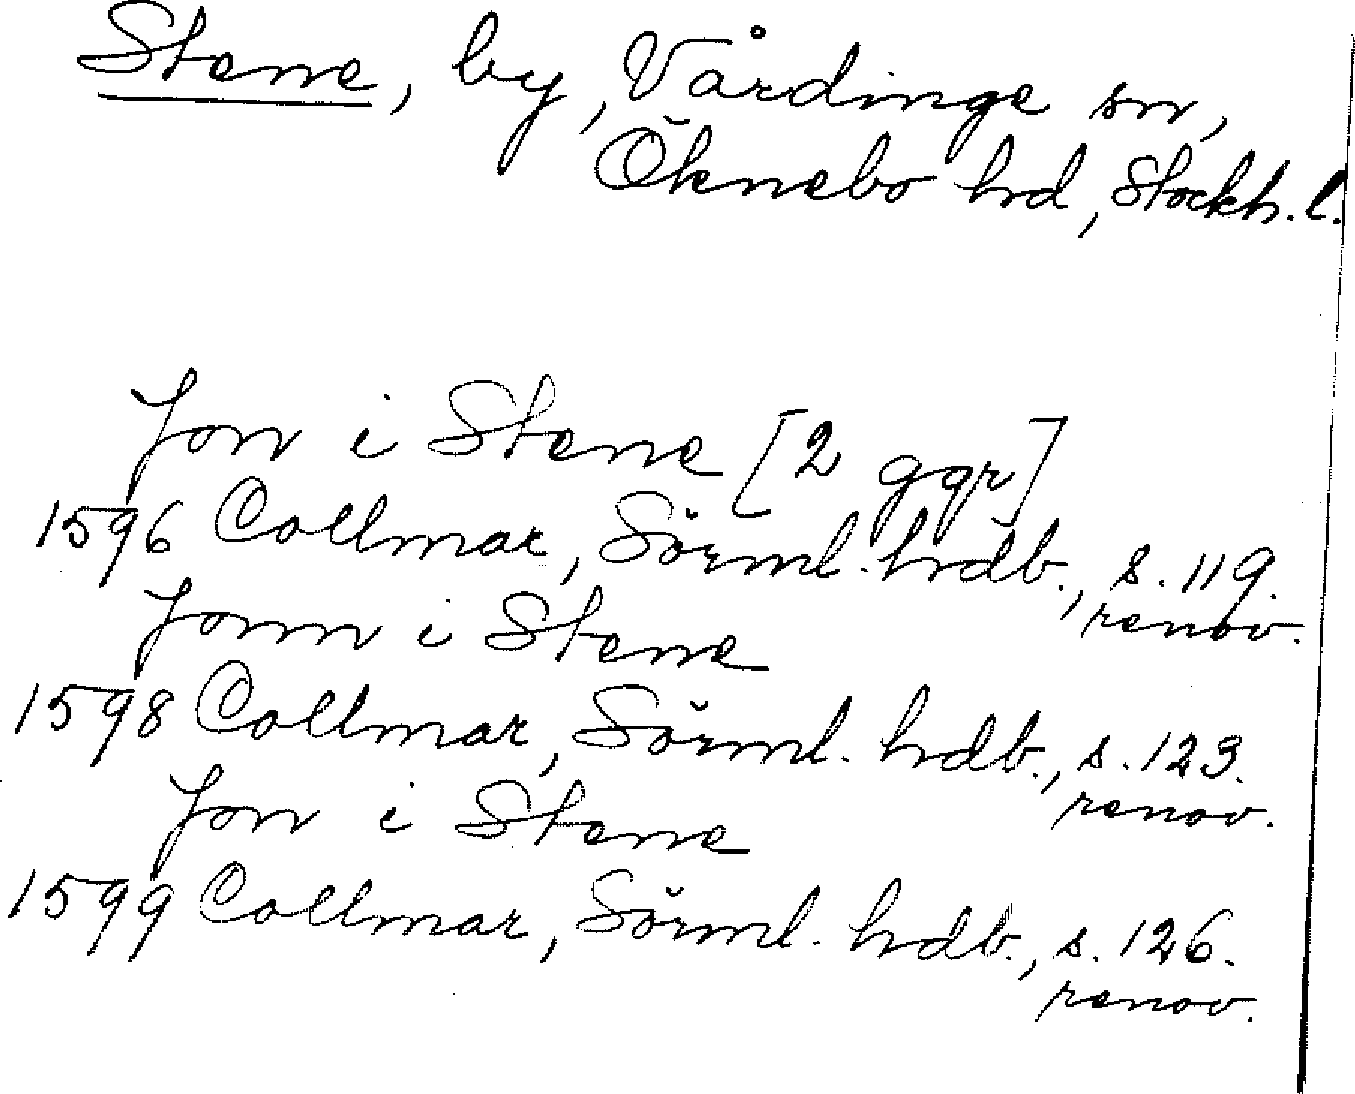 Stene, by, Vårdinge sn,
Öknebo hrd, Stockh. l.
Jon i Stene [2 ggr]
1596 Collmar, Sörml. hrdb., s. 119.
renov.
Jonn i Stene
1598 Collmar, Sörml. hrdb., s. 123.
renov.
Jon i Stene
1599 Collmar, Sörml. hrdb., s. 126.
renov.